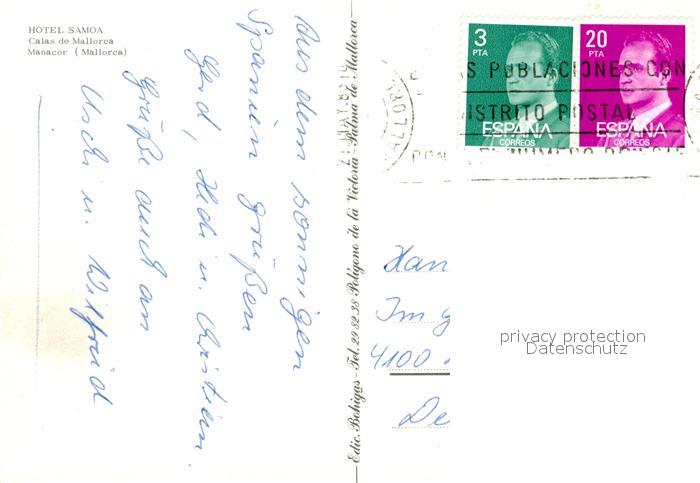 HOTEL SAMOA
Calas de Mallorca
Manacor (Mallorca)
Aus dem sonnigen
Spanien grüßen
Gerd, Hedi u. Christian.
Grüße auch an
Uschi u. Wilfried
Edic. Bohigas - Tel. 29 82 38 - Polígono de la Victoria - Palma de Mallorca
3
PTA
ESPAÑA
CORREOS
20
PTA
ESPAÑA
CORREOS
AS POBLACIONES CON
DISTRITO POSTAL
Han
Im g
4100
De
privacy protection
Datenschutz